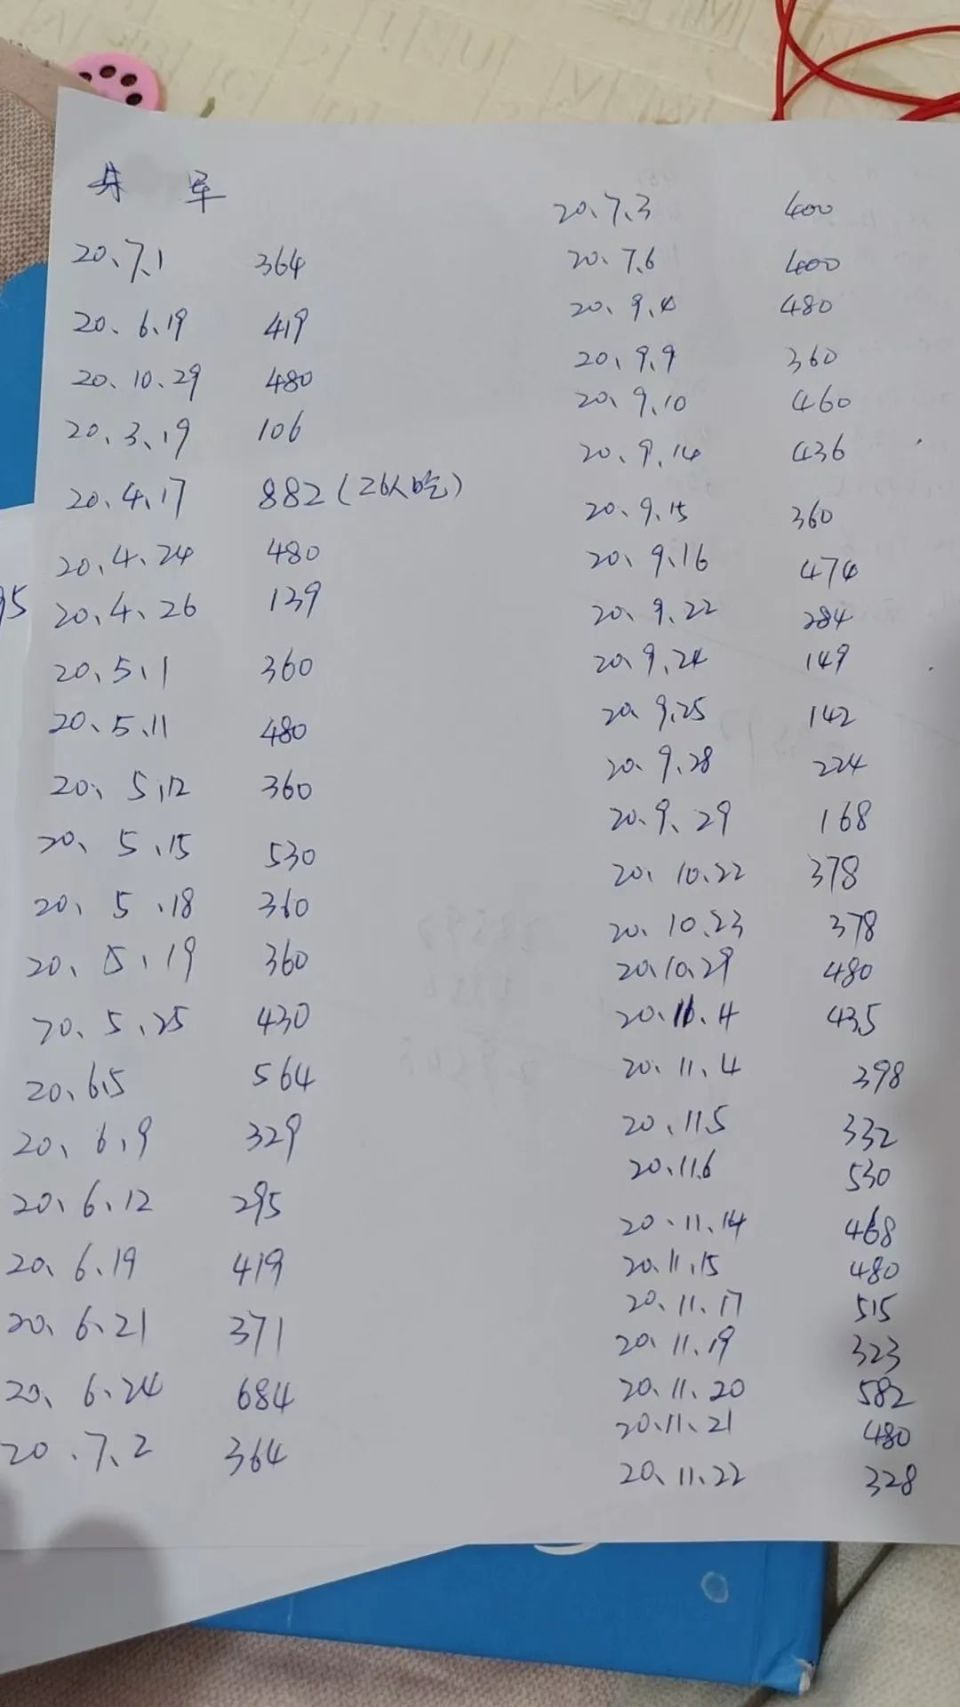 军
20.7.1 364
20.6.19 419
20.10.29 480
20.3.19 106
20.4.17 882(26人吃)
20.4.24 480
20.4.26 139
20.5.1 360
20.5.11 480
20.5.12 360
20.5.15 530
20.5.18 360
20.5.19 360
20.5.25 430
20.6.5 564
20.6.9 329
20.6.12 295
20.6.19 419
20.6.21 371
20.6.24 684
20.7.2 364
20.7.3 400
20.7.6 400
20.9.4 480
20.9.9 360
20.9.10 460
20.9.14 436
20.9.15 360
20.9.16 474
20.9.22 284
20.9.24 149
20.9.25 142
20.9.28 224
20.9.29 168
20.10.22 378
20.10.23 378
20.10.29 480
20.11.4 435
20.11.4 398
20.11.5 332
20.11.6 530
20.11.14 468
20.11.15 480
20.11.17 515
20.11.19 323
20.11.20 582
20.11.21 480
20.11.22 328